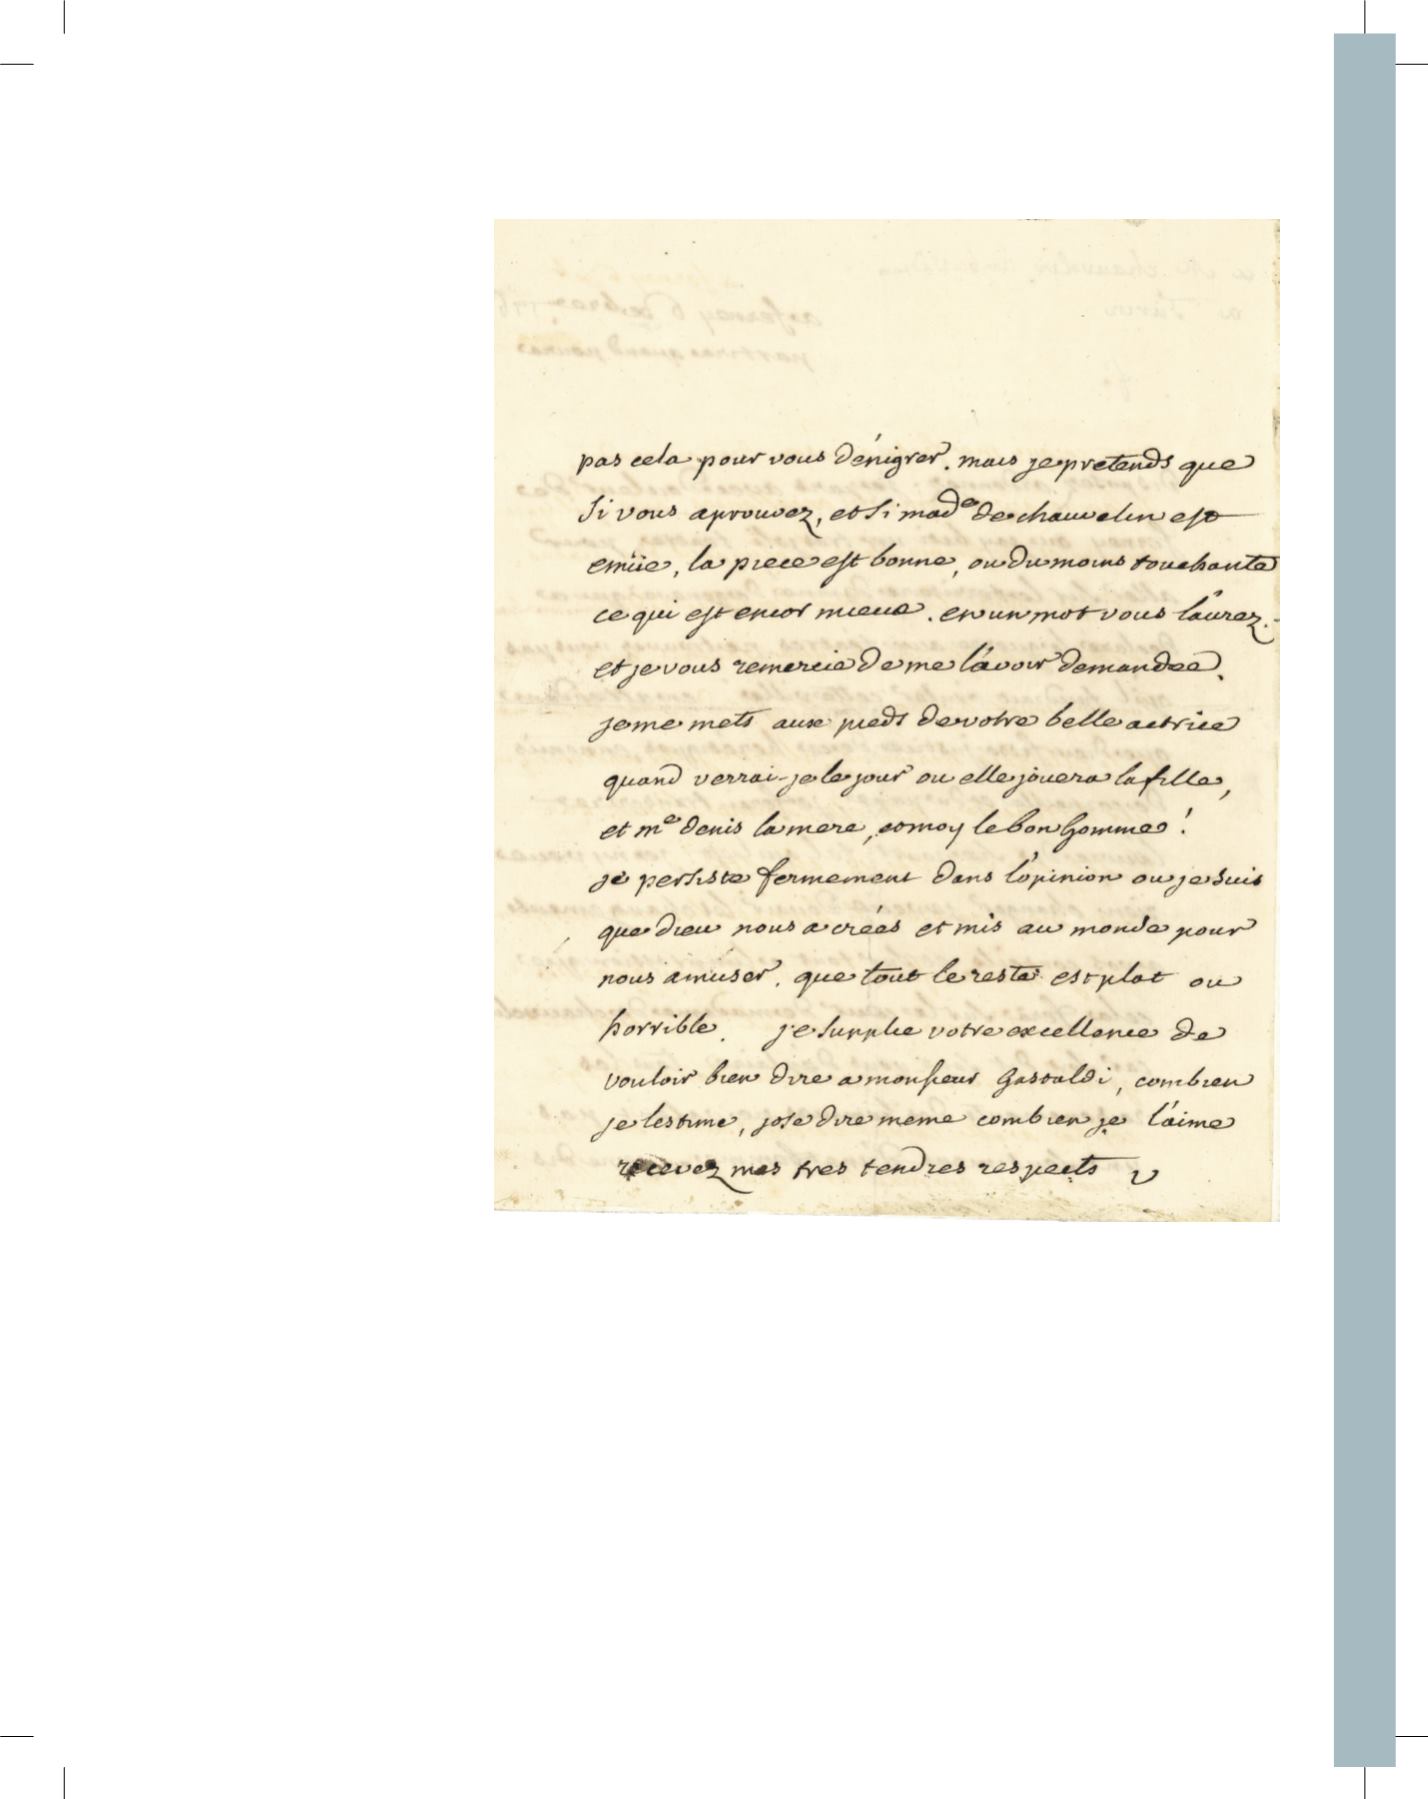 pas cela pour vous dénigrer. mais je pretends que
si vous aprouvez, et si mad^e de chauvelin est
emüe, la piece est bonne, ou du moins touchante
ce qui est encor mieux. en un mot vous l'aurez.
et je vous remercie de me l'avoir demandée.
je me mets aux pieds de votre belle actrice
quand verrai-je le jour ou elle jouera la fille,
et m^e denis la mere, et moy le bon homme !
je persiste fermement dans l'opinion ou je suis
que dieu nous a créés et mis au monde pour
nous amuser. que tout le reste est plat ou
horrible. je supplie votre excellence de
vouloir bien dire a monsieur Gastaldi, combien
je lestime, jose dire meme combien je l'aime
recevez mes tres tendres respects V